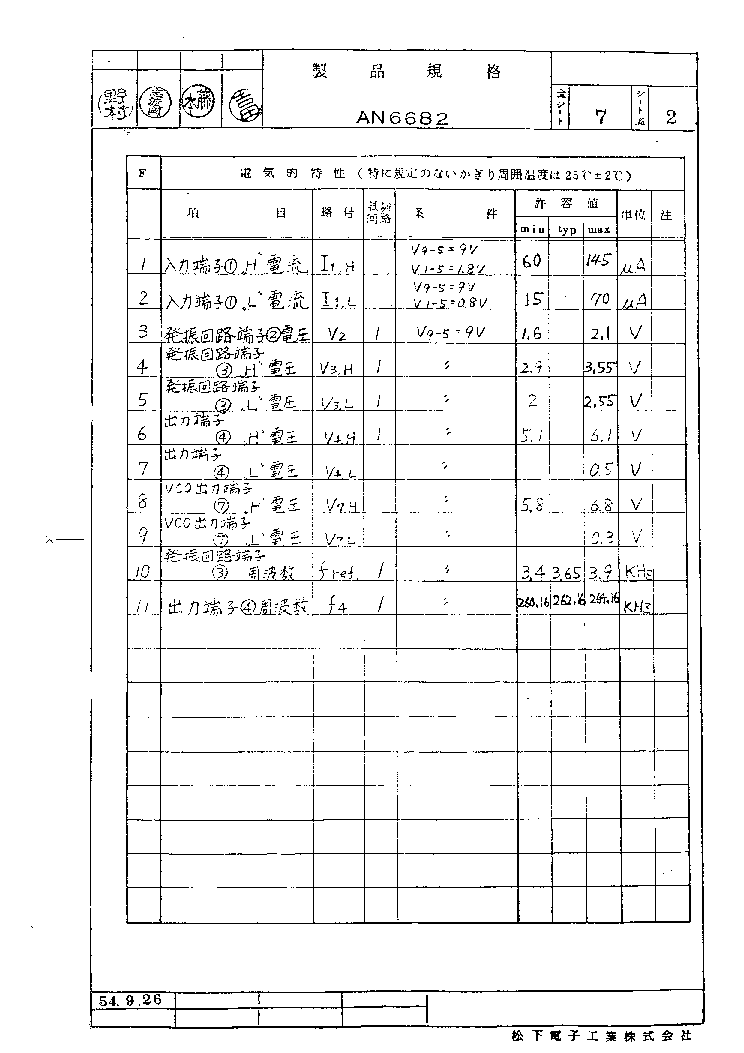 製品規格
AN6682
全シート 7 シート№ 2
F 電気的特性(特に規定のないかぎり周囲温度は25℃±2℃)
項目 略号 測定回路 条件 許容値 単位 注
min typ max
1 入力端子① "H" 電流 I1,H V9-5=9V V1-5=1.8V 60 145 μA
2 入力端子① "L" 電流 I1,L V9-5=9V V1-5=0.8V 15 70 μA
3 発振回路端子②電圧 V2 1 V9-5=9V 1.6 2.1 V
4 発振回路端子③ "H" 電圧 V3,H 1 〃 2.9 3.55 V
5 発振回路端子③ "L" 電圧 V3,L 1 〃 2 2.55 V
6 出力端子④ "H" 電圧 V4,H 1 〃 5.1 6.1 V
7 出力端子④ "L" 電圧 V4,L 〃 0.5 V
8 VCO出力端子⑦ "H" 電圧 V7,H 〃 5.8 6.8 V
9 VCO出力端子⑦ "L" 電圧 V7,L 〃 0.3 V
10 発振回路端子③ 周波数 fref. 1 〃 3.4 3.65 3.9 KHz
11 出力端子④周波数 f4 1 〃 260.16 262.16 264.16 KHz
54.9.26
松下電子工業株式会社